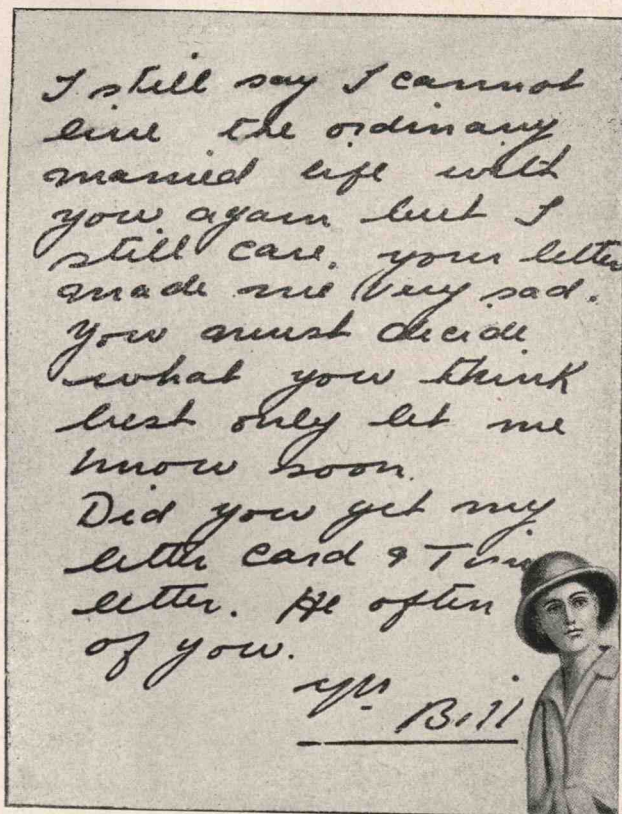 I still say I cannot
live the ordinary
married life with
you again but I
still care. your letter
made me very sad.
You must decide
what you think
best only let me
know soon.
Did you get my
letter card &
letter. He often
of you.
yrs
Bill